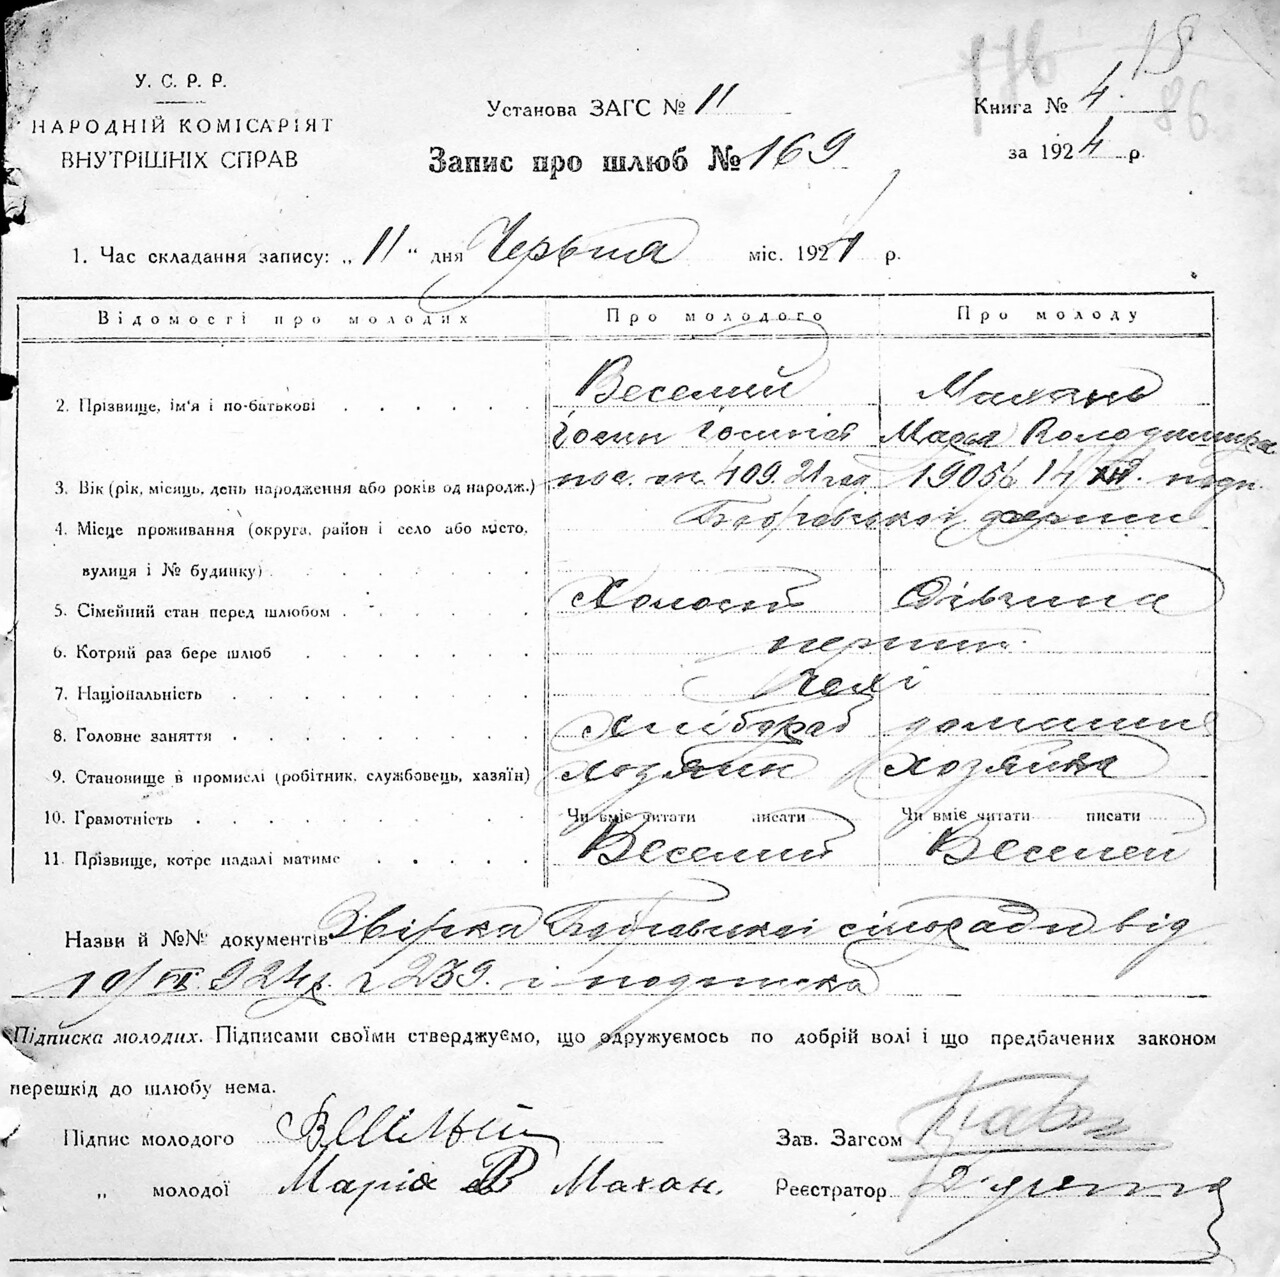 176 18
86
У. С. Р. Р.
НАРОДНІЙ КОМІСАРІЯТ
ВНУТРІШНІХ СПРАВ
Установа ЗАГС № 11
Книга № 4.
Запис про шлюб № 169
за 1924 р.
1. Час складання запису: „ 11 “ дня Червня міс. 1924 р.
Відомості про молодих Про молодого Про молоду
2. Прізвище, ім'я і по-батькові Веселий Махань
Йосип Мария Володимировна
3. Вік (рік, місяць, день народження або років од народж.) 409. 21 год. 1905
4. Місце проживання (округа, район і село або місто,
вулиця і № будинку)
5. Сімейний стан перед шлюбом Холост Дівчина
6. Котрий раз бере шлюб перший
7. Національність Чехі
8. Головне заняття Хлібороб домашня
9. Становище в промислі (робітник, службовець, хазяїн) хозяин хозяйка
10. Грамотність Чи вміє читати писати Чи вміє читати писати
11. Прізвище, котре надалі матиме Веселий Веселий
Назви й №№ документів сільради від
10/VI. 924р. № 239. і подписка
Підписка молодих. Підписами своїми стверджуємо, що одружуємось по добрій волі і що предбачених законом
перешкід до шлюбу нема.
Підпис молодого
Зав. Загсом
„ молодої Марія В Махан.
Реєстратор